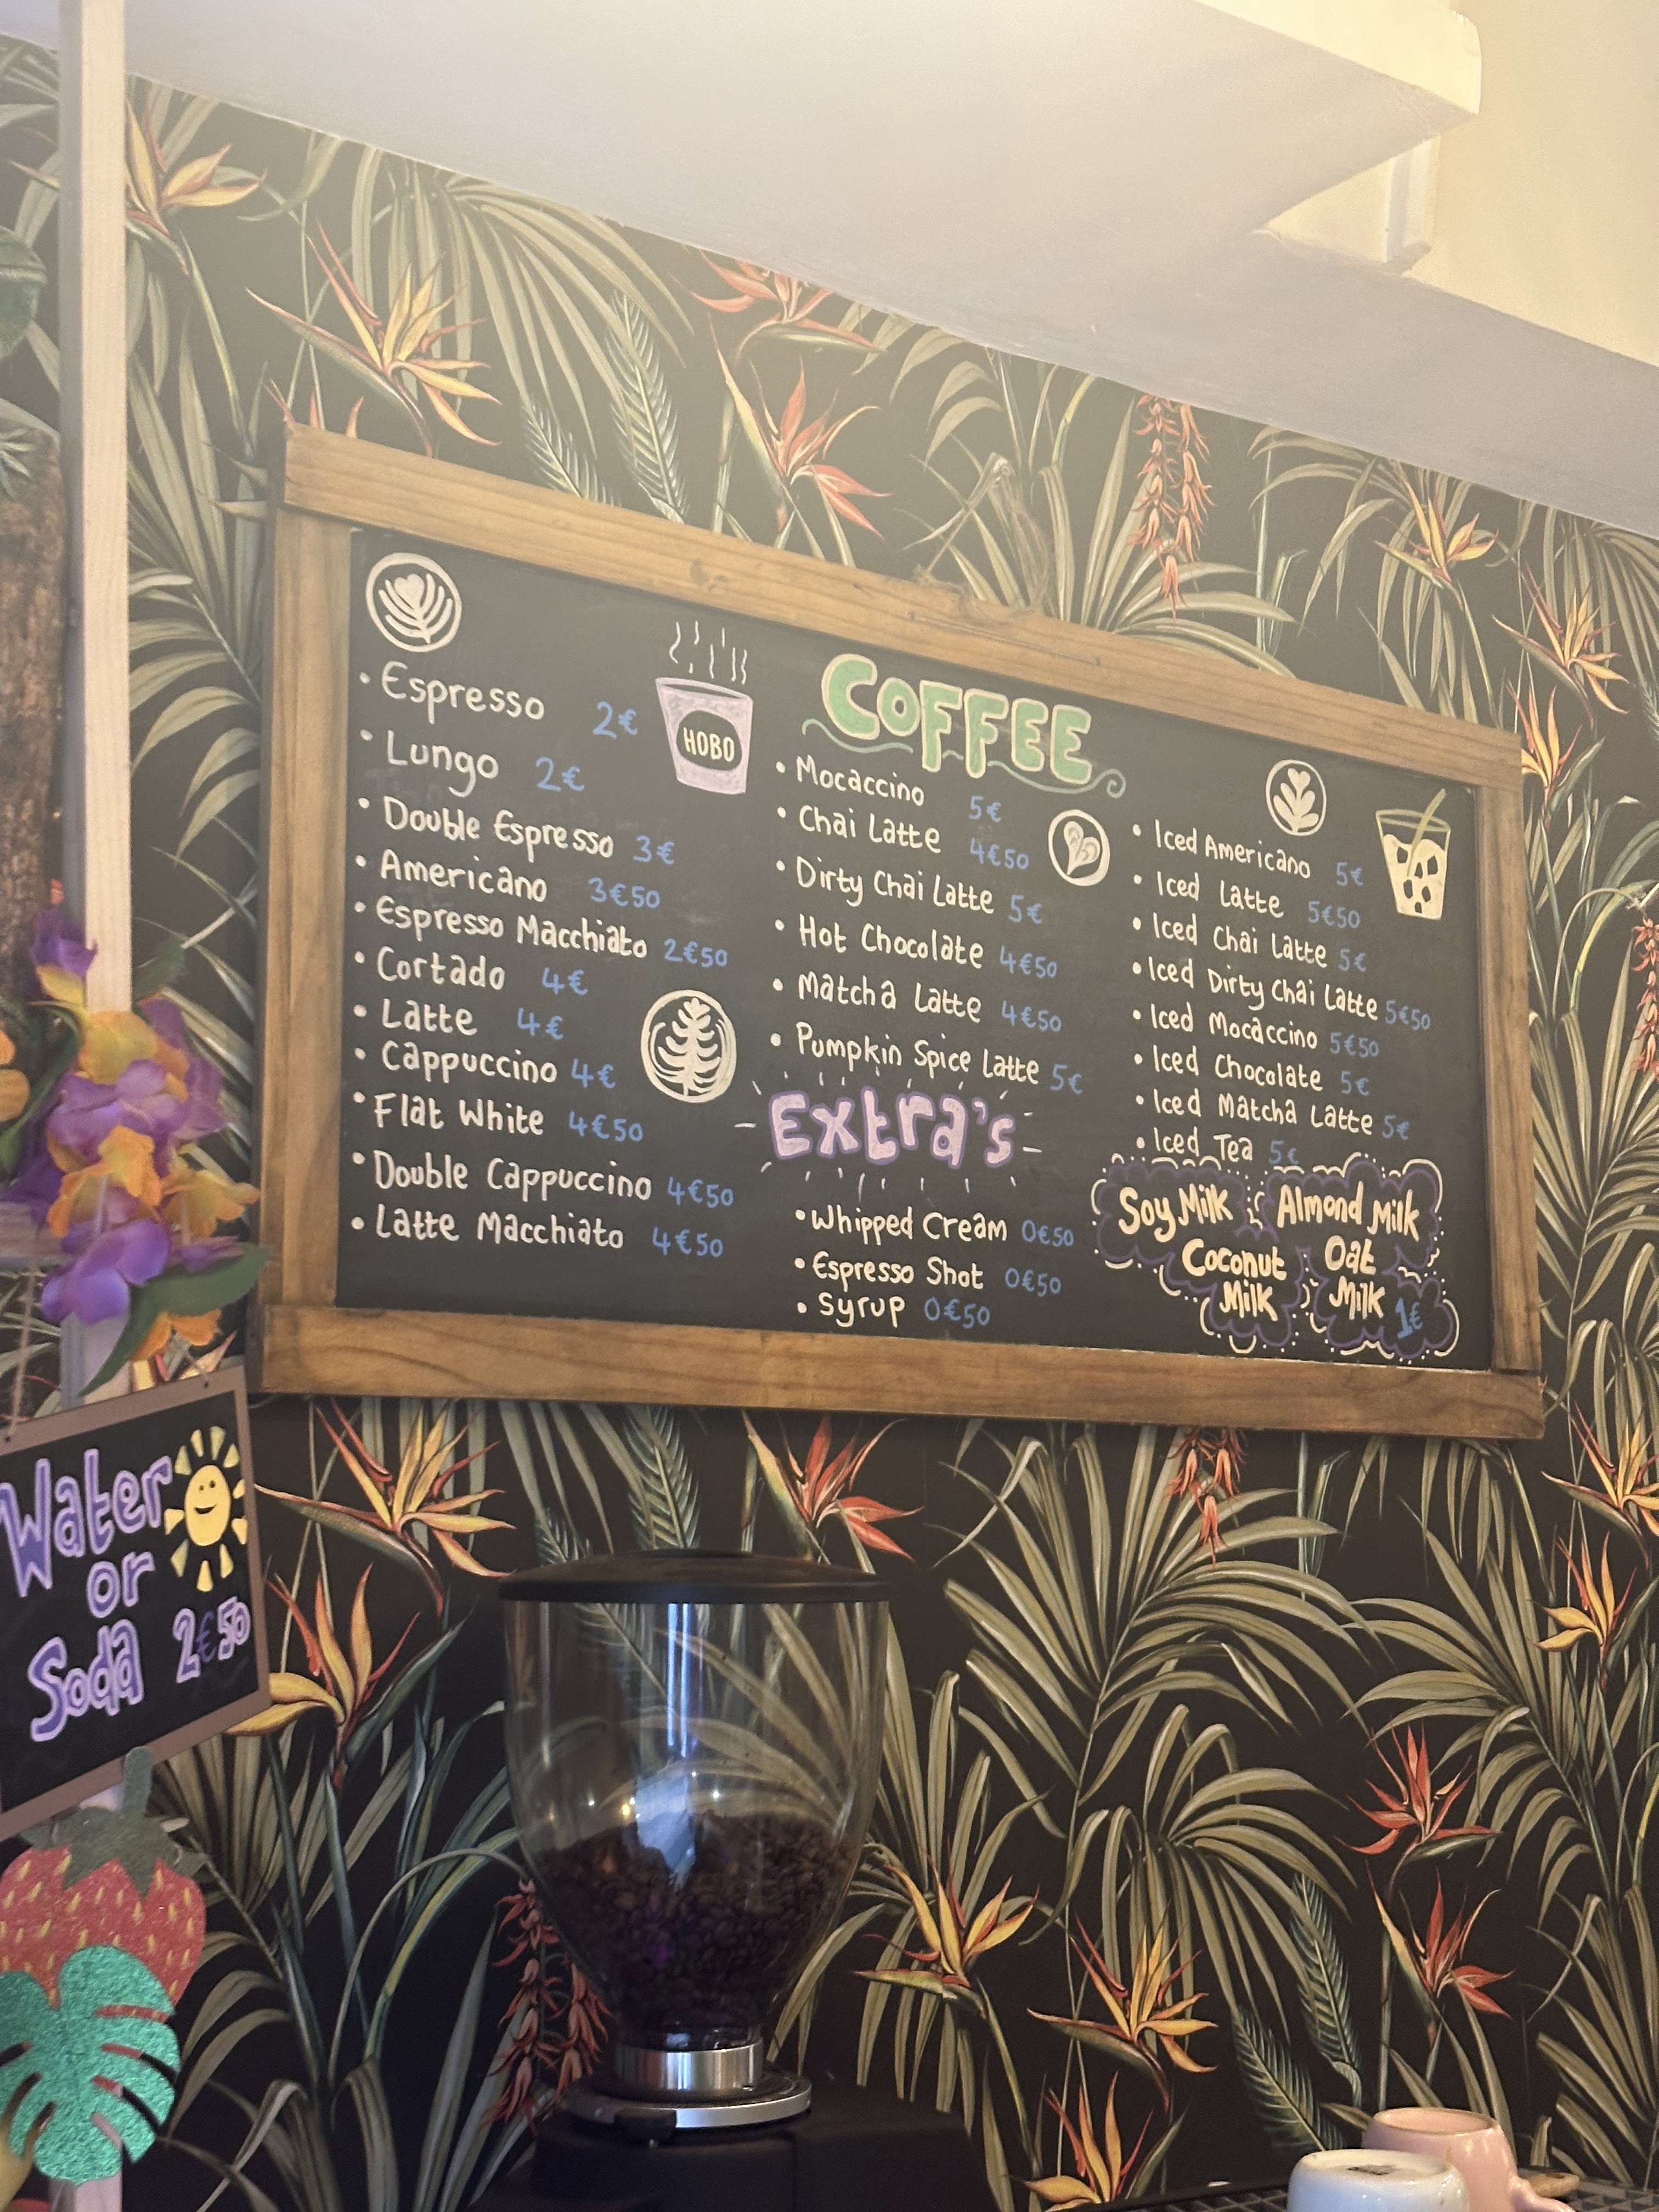 COFFEE
HOBO
• Espresso 2€
• Lungo 2€
• Double Espresso 3€
• Americano 3€50
• Espresso Macchiato 2€50
• Cortado 4€
• Latte 4€
• Cappuccino 4€
• Flat White 4€50
• Double Cappuccino 4€50
• Latte Macchiato 4€50
• Mocaccino 5€
• Chai Latte 4€50
• Dirty Chai Latte 5€
• Hot Chocolate 4€50
• Matcha Latte 4€50
• Pumpkin Spice Latte 5€
Extra's
• Whipped Cream 0€50
• Espresso Shot 0€50
• Syrup 0€50
• Iced Americano 5€
• Iced Latte 5€50
• Iced Chai Latte 5€
• Iced Dirty Chai Latte 5€50
• Iced Mocaccino 5€50
• Iced Chocolate 5€
• Iced Matcha Latte 5€
• Iced Tea 5€
Soy Milk
Almond Milk
Coconut
Milk
Oat
Milk 1€
Water
or
Soda 2€50